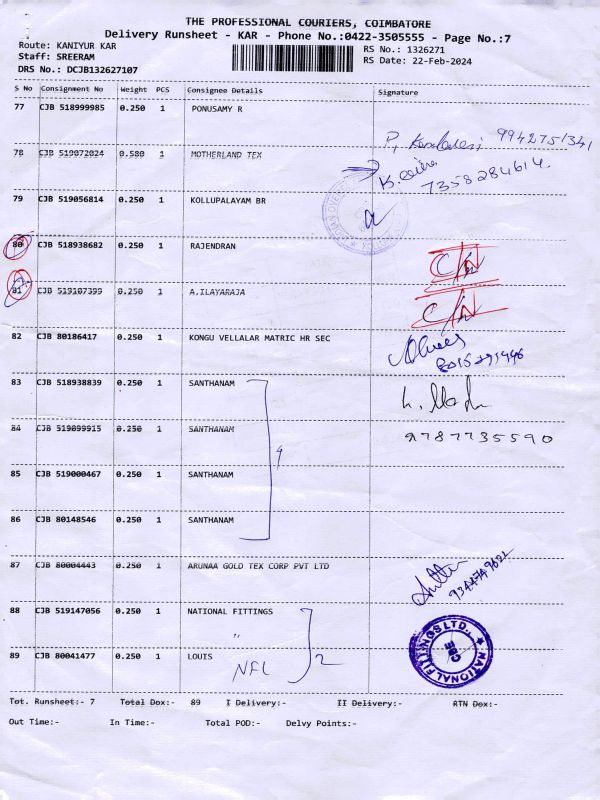 THE PROFESSIONAL COURIERS, COIMBATORE
Delivery Runsheet - KAR - Phone No.:0422-3505555 - Page No.:7
Route: KANIYUR KAR
RS No.: 1326271
Staff: SREERAM
RS Date: 22-Feb-2024
DRS No.: DCJB132627107
S No Consignment No Weight PCS Consignee Details Signature
77 CJB 518999985 0.250 1 PONUSAMY R
9942751341
78 CJB 519072024 0.500 1 MOTHERLAND TEX
7358284614
79 CJB 519056814 0.250 1 KOLLUPALAYAM BR
80 CJB 518938682 0.250 1 RAJENDRAN
81 CJB 519107399 0.250 1 A.ILAYARAJA
82 CJB 80186417 0.250 1 KONGU VELLALAR MATRIC HR SEC
83 CJB 518938839 0.250 1 SANTHANAM
84 CJB 519099915 0.250 1 SANTHANAM
9787735590
85 CJB 519000467 0.250 1 SANTHANAM
86 CJB 80148546 0.250 1 SANTHANAM
87 CJB 80004443 0.250 1 ARUNAA GOLD TEX CORP PVT LTD
88 CJB 519147056 0.250 1 NATIONAL FITTINGS
〃
NATIONAL FITTINGS LTD., CBE
89 CJB 80041477 0.250 1 LOUIS
NFL 2
Tot. Runsheet:- 7 Total Dox:- 89 I Delivery:- II Delivery:- RTN Dox:-
Out Time:- In Time:- Total POD:- Delvy Points:-